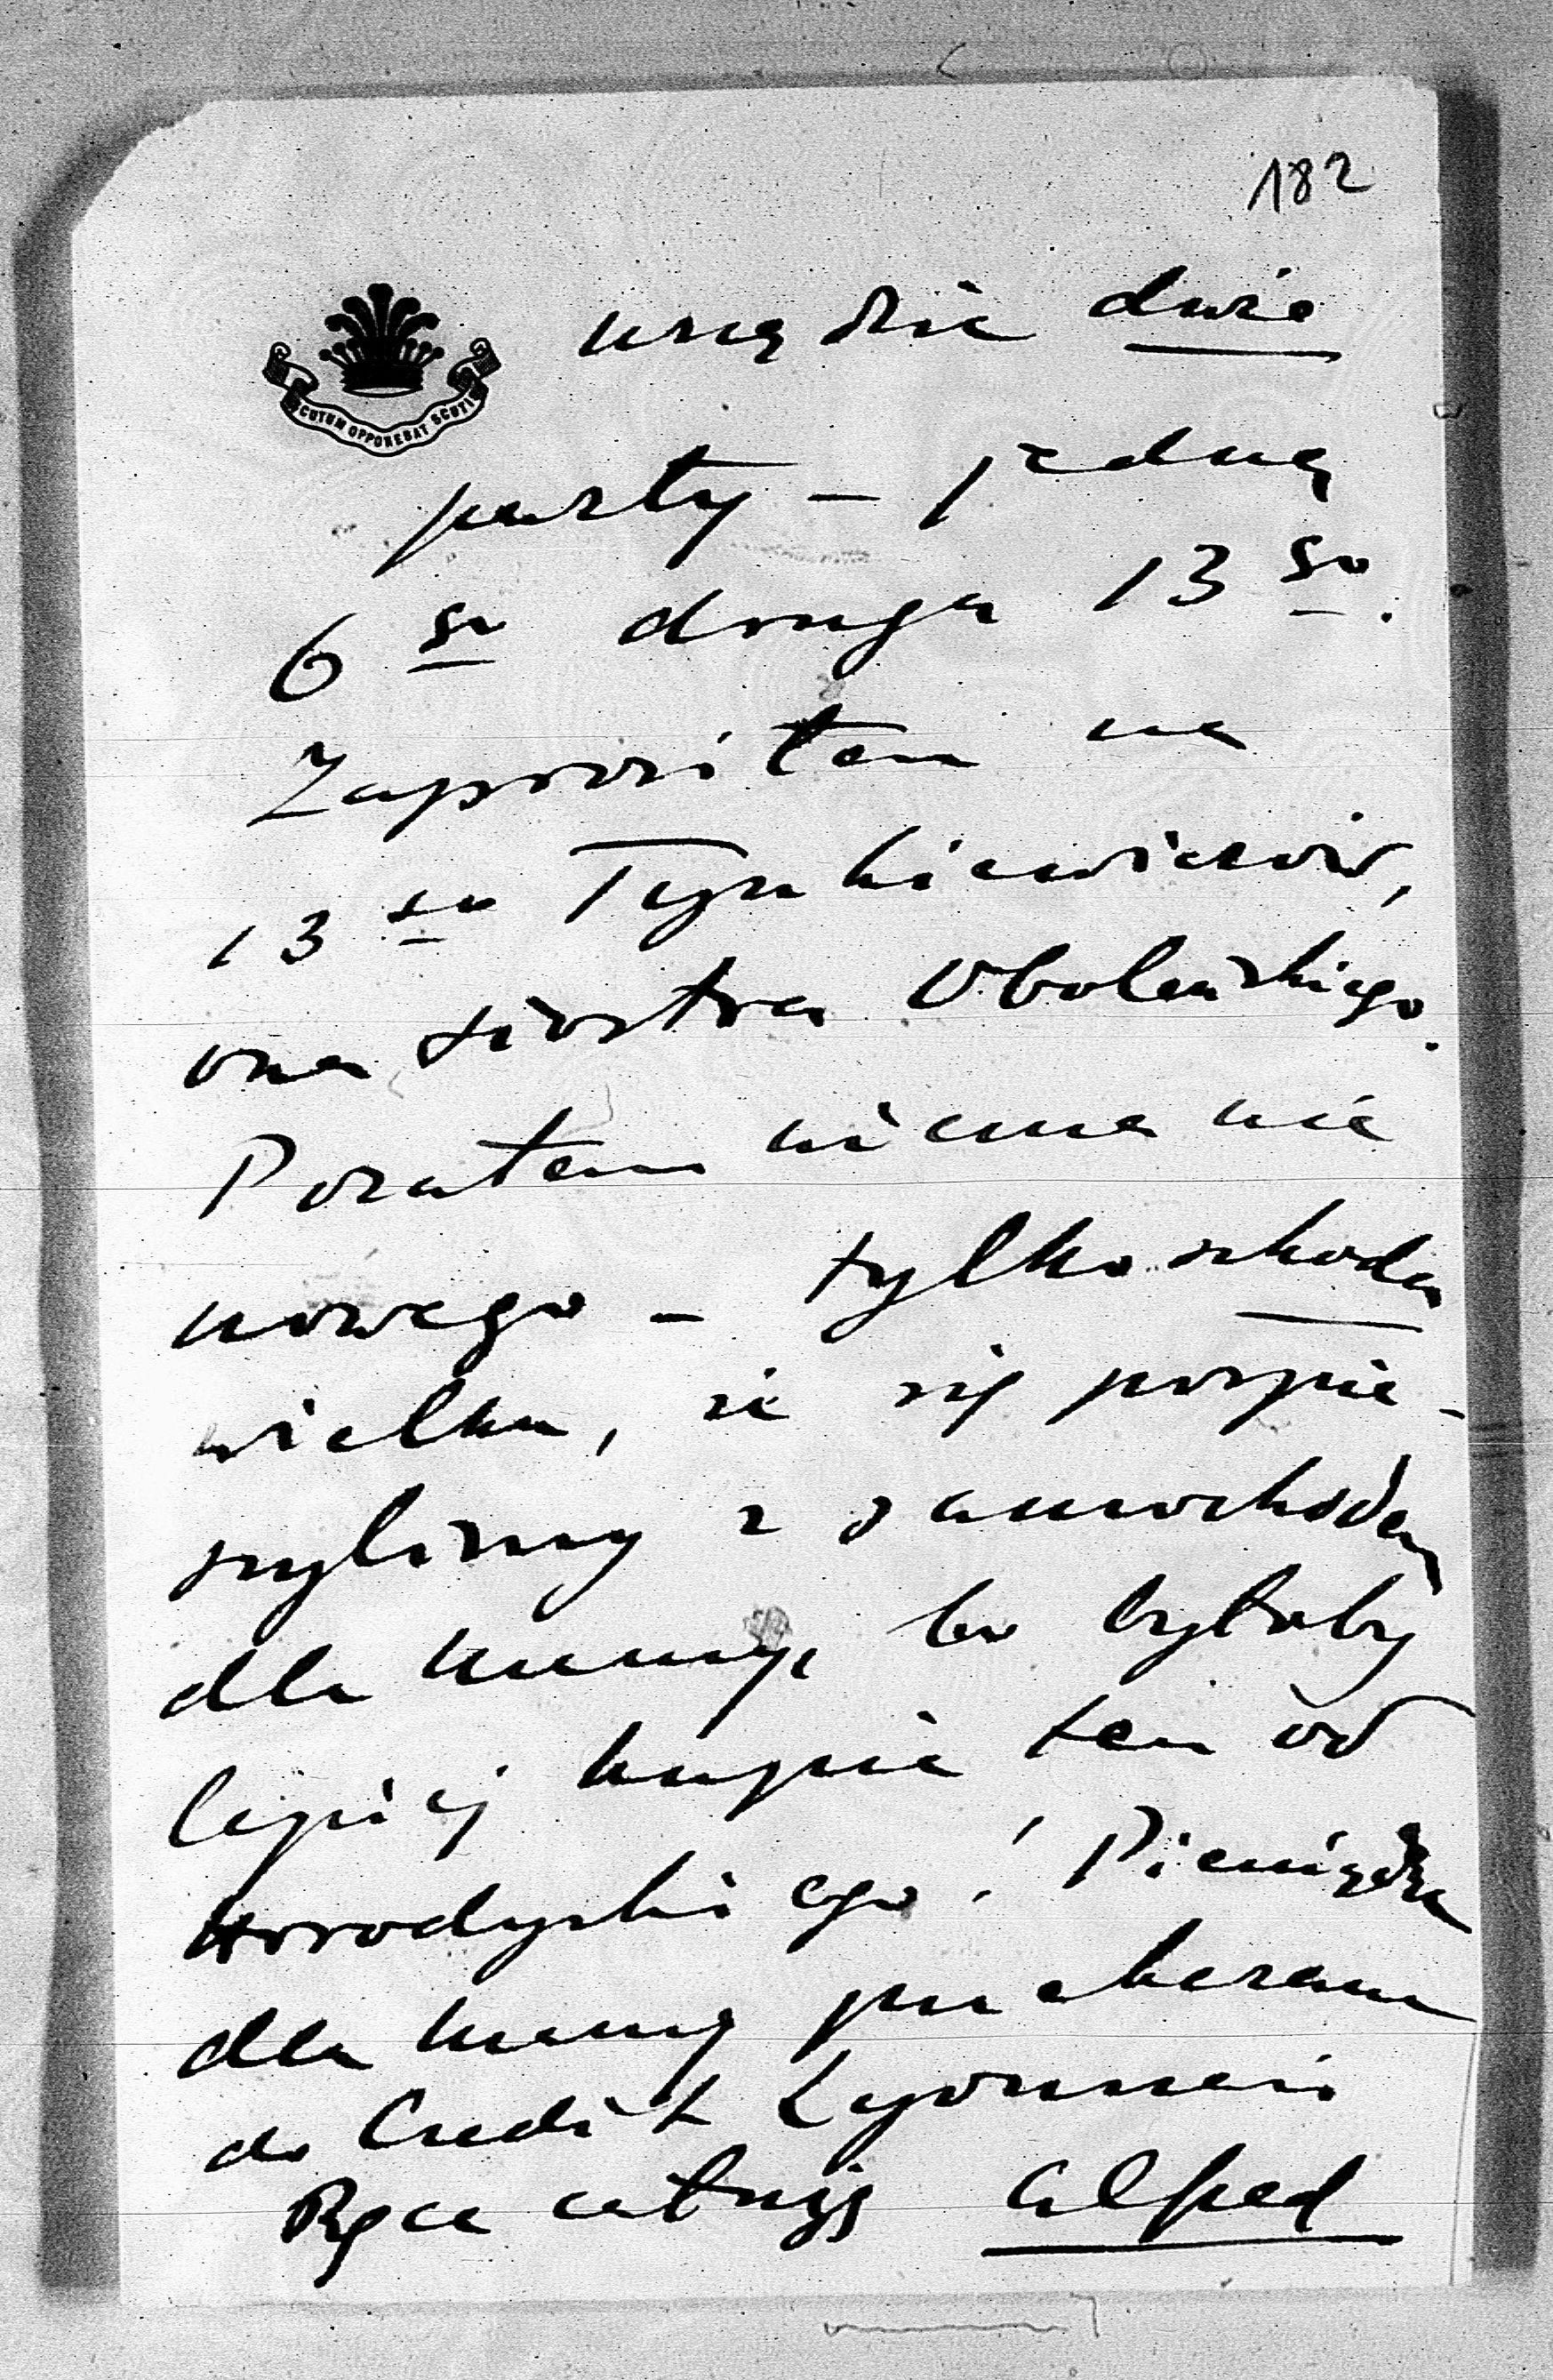 182
SCUTUM OPPONEBAT SCUTIS
urządzić dwie
party - jedną
6 go drugą 13 go.
Zaprosiłem na
13 go Tyszkiewiczów,
ona siostra Oboleńskiego.
Pozatem niema nic
nowego - tylko szkoda
wielka, że się pospie-
szyliśmy z samochodem
dla Mamy, bo byłoby
lepiej kupić ten od
Horodyskiego! Pieniądze
dla Mamy
do Credit Lyonnais
Ręce całuję Alfred